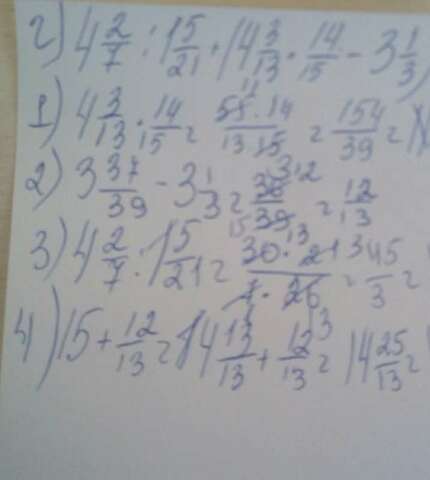 г) 4 2/7 : 1 5/21 + 4 3/13 · 14/15 - 3 1/3
1) 4 3/13 · 14/15 = 55 · 14 / 13 · 15 = 154/39 =
2) 3 37/39 - 3 1/3 = 36/39 = 12/13
3) 4 2/7 : 1 5/21 = 30 · 21 / 7 · 26 = 45/3 =
4) 15 + 12/13 = 14 13/13 + 12/13 = 14 25/13 =